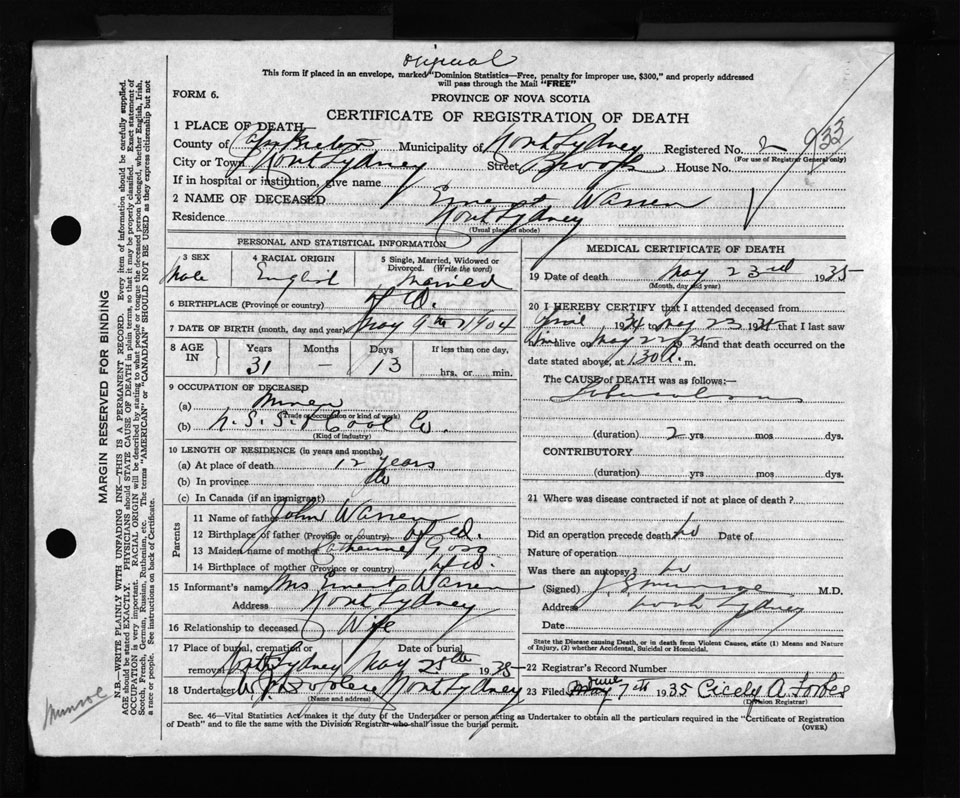 Original
This form if placed in an envelope, marked "Dominion Statistics—Free, penalty for improper use, $300," and properly addressed
will pass through the Mail "FREE"
FORM 6.
PROVINCE OF NOVA SCOTIA
CERTIFICATE OF REGISTRATION OF DEATH
1 PLACE OF DEATH
County of Cape Breton Municipality of North Sydney Registered No. 2
(For use of Registrar General only)
City or Town North Sydney Street House No.
If in hospital or institution, give name
2 NAME OF DECEASED Ernest Warren
Residence North Sydney
(Usual place of abode)
PERSONAL AND STATISTICAL INFORMATION
3 SEX 4 RACIAL ORIGIN 5 Single, Married, Widowed or
Divorced. (Write the word)
Male English Married
6 BIRTHPLACE (Province or country) Nfld.
7 DATE OF BIRTH (month, day and year) May 9th 1904
8 AGE IN Years Months Days If less than one day,
31 — 13 hrs. or min.
9 OCCUPATION OF DECEASED
(a) Miner
(Trade or occupation or kind of work)
(b) N. S. S. & Coal Co.
(Kind of industry)
10 LENGTH OF RESIDENCE (in years and months)
(a) At place of death 12 years
(b) In province do
(c) In Canada (if an immigrant)
Parents
11 Name of father John Warren
12 Birthplace of father (Province or country) Nfld.
13 Maiden name of mother Catherine
14 Birthplace of mother (Province or country) Nfld.
15 Informant's name Mrs Ernest Warren
Address North Sydney
16 Relationship to deceased Wife
17 Place of burial, cremation or Date of burial
removal North Sydney May 25th 1935
18 Undertaker North Sydney
(Name and address)
MEDICAL CERTIFICATE OF DEATH
19 Date of death May 23rd 1935
(Month, day and year)
20 I HEREBY CERTIFY that I attended deceased from
April 1934 to May 23 1935 that I last saw
him alive on May 22 1935 and that death occurred on the
date stated above, at 1.30 A. m.
The CAUSE of DEATH was as follows:—
Tuberculosis
(duration) 2 yrs mos dys.
CONTRIBUTORY
(duration) yrs mos dys.
21 Where was disease contracted if not at place of death?
Did an operation precede death no Date of
Nature of operation
Was there an autopsy? no
(Signed) M.D.
Address North Sydney
Date
State the Disease causing Death, or in death from Violent Causes, state (1) Means and Nature
of Injury, (2) whether Accidental, Suicidal or Homicidal.
22 Registrar's Record Number
23 Filed June 7th 1935 Cicely A. Forbes
(Division Registrar)
Sec. 46—Vital Statistics Act makes it the duty of the Undertaker or person acting as Undertaker to obtain all the particulars required in the "Certificate of Registration
of Death" and to file the same with the Division Registrar who shall issue the burial permit.
(OVER)
MARGIN RESERVED FOR BINDING
N.B.—WRITE PLAINLY WITH UNFADING INK—THIS IS A PERMANENT RECORD. Every item of information should be carefully supplied.
AGE should be stated EXACTLY. PHYSICIANS should STATE CAUSE OF DEATH in plain terms, so that it may be properly classified. Exact statement of
OCCUPATION is very important. RACIAL ORIGIN will be described by stating to what people or tongue the deceased person belonged, whether English, Irish,
Scotch, French, German, Russian, Ruthenian, etc. The terms "AMERICAN" or "CANADIAN" SHOULD NOT BE USED as they express citizenship but not
a race or people. See instructions on back of Certificate.
Munroe